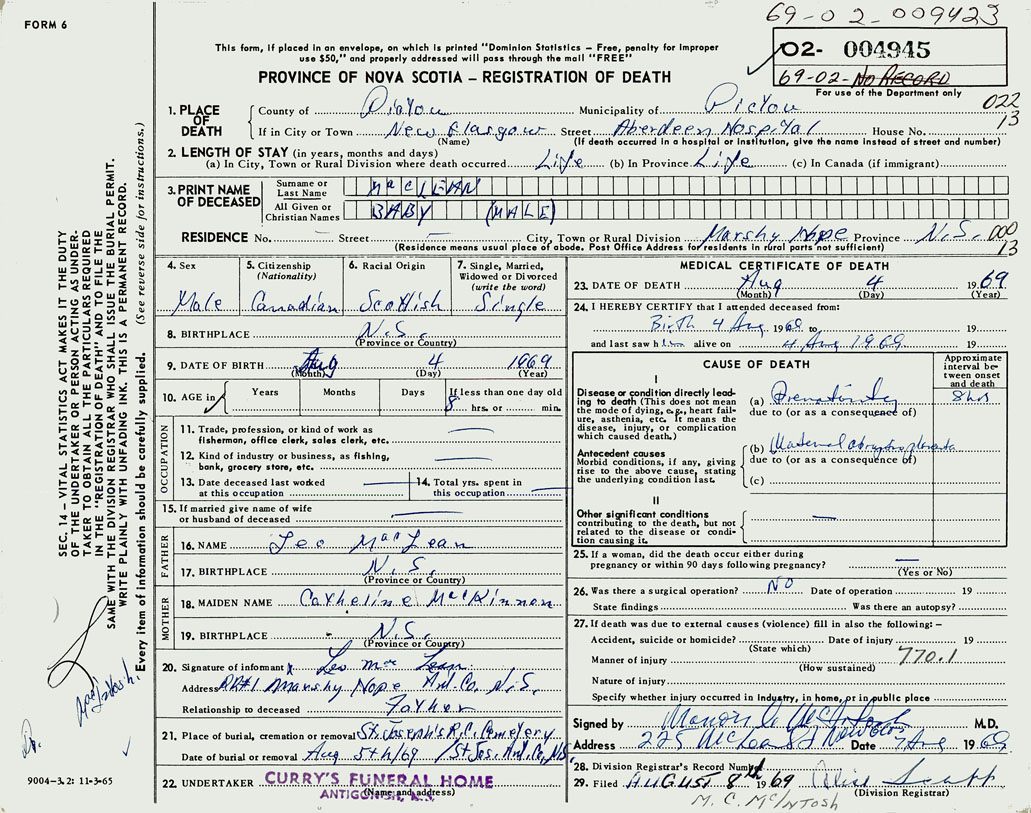 FORM 6
69-02-009423
This form, if placed in an envelope, on which is printed "Dominion Statistics – Free, penalty for improper
use $50," and properly addressed will pass through the mail "FREE"
02- 004945
69-02-NO RECORD
For use of the Department only
PROVINCE OF NOVA SCOTIA – REGISTRATION OF DEATH
022
13
1. PLACE OF DEATH
County of Pictou Municipality of Pictou
If in City or Town New Glasgow Street Aberdeen Hospital House No.
(Name) (If death occurred in a hospital or institution, give the name instead of street and number)
2. LENGTH OF STAY (in years, months and days)
(a) In City, Town or Rural Division where death occurred Life (b) In Province Life (c) In Canada (if immigrant)
3. PRINT NAME OF DECEASED
Surname or Last Name MacLEAN
All Given or Christian Names BABY (MALE)
RESIDENCE No. — Street — City, Town or Rural Division Marshy Hope Province N.S.
000
13
(Residence means usual place of abode. Post Office Address for residents in rural parts not sufficient)
4. Sex
Male
5. Citizenship (Nationality)
Canadian
6. Racial Origin
Scottish
7. Single, Married, Widowed or Divorced (write the word)
Single
8. BIRTHPLACE N.S.
(Province or Country)
9. DATE OF BIRTH Aug 4 1969
(Month) (Day) (Year)
10. AGE in Years Months Days If less than one day old
8 hrs. or min.
OCCUPATION
11. Trade, profession or kind of work as
fisherman, office clerk, sales clerk, etc. —
12. Kind of industry or business, as fishing,
bank, grocery store, etc. —
13. Date deceased last worked
at this occupation —
14. Total yrs. spent in
this occupation —
15. If married give name of wife
or husband of deceased —
FATHER
16. NAME Leo MacLean
17. BIRTHPLACE N.S.
(Province or Country)
MOTHER
18. MAIDEN NAME Catherine MacKinnon
19. BIRTHPLACE N.S.
(Province or Country)
20. Signature of informant x Leo MacLean
Address RR#1 Marshy Hope Ant. Co. N.S.
Relationship to deceased Father
21. Place of burial, cremation or removal St. Joseph's R.C. Cemetery
Date of burial or removal Aug 5th/69 /St Jos. Ant. Co, N.S.
22. UNDERTAKER CURRY'S FUNERAL HOME
ANTIGONISH, N.S.
(Name and address)
MEDICAL CERTIFICATE OF DEATH
23. DATE OF DEATH Aug 4 1969
(Month) (Day) (Year)
24. I HEREBY CERTIFY that I attended deceased from:
Birth 4 Aug 1969 to 19
and last saw him alive on 4 Aug 1969. 19
CAUSE OF DEATH
Approximate interval between onset and death
I
Disease or condition directly leading to death (This does not mean
the mode of dying, e.g., heart failure, asthenia, etc. It means the
disease, injury, or complication
which caused death.)
(a) Prematurity 8 hrs
due to (or as a consequence of)
Antecedent causes
Morbid conditions, if any, giving
rise to the above cause, stating
the underlying condition last.
(b) Maternal abruptio placenta
due to (or as a consequence of)
(c)
II
Other significant conditions
contributing to the death, but not
related to the disease or condition causing it. —
25. If a woman, did the death occur either during
pregnancy or within 90 days following pregnancy? —
(Yes or No)
26. Was there a surgical operation? NO Date of operation 19
State findings Was there an autopsy?
27. If death was due to external causes (violence) fill in also the following: –
Accident, suicide or homicide? Date of injury 19
(State which)
Manner of injury 770.1
(How sustained)
Nature of injury
Specify whether injury occurred in industry, in home, or in public place
Signed by M.D.
Address 225 Date 7 Aug 1969
28. Division Registrar's Record Number
29. Filed AUGUST 8th 1969
(Division Registrar)
M. C. McINTOSH
SEC. 14 – VITAL STATISTICS ACT MAKES IT THE DUTY
OF THE UNDERTAKER OR PERSON ACTING AS UNDERTAKER TO OBTAIN ALL THE PARTICULARS REQUIRED
IN THE "REGISTRATION OF DEATH" AND TO FILE THE
SAME WITH THE DIVISION REGISTRAR WHO SHALL ISSUE THE BURIAL PERMIT.
WRITE PLAINLY WITH UNFADING INK. THIS IS A PERMANENT RECORD.
Every item of information should be carefully supplied. (See reverse side for instructions.)
Dr. MacIntosh.
9004-3.2: 11-3-65